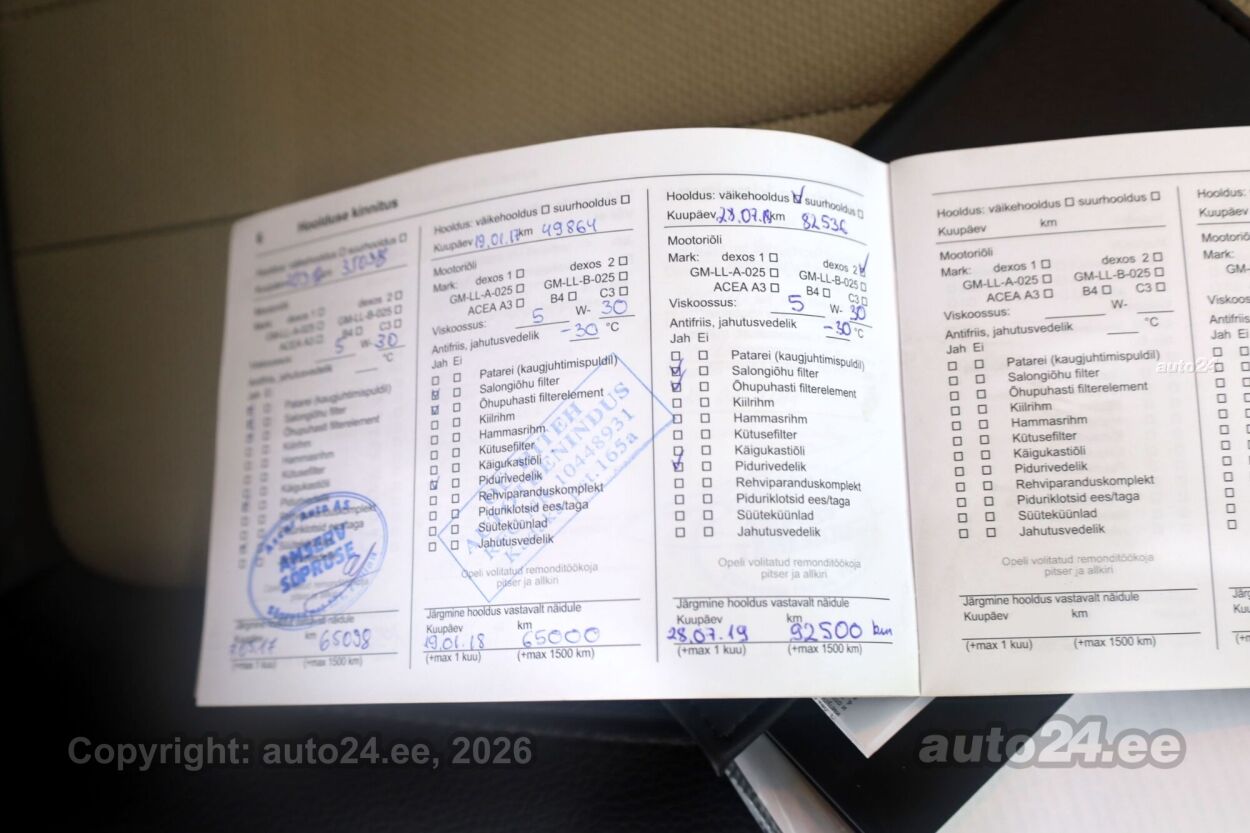 6 Hoolduse kinnitus
Hooldus: väikehooldus suurhooldus
Kuupäev km 35038
Mootoriõli
Mark: dexos 1 dexos 2
GM-LL-A-025 GM-LL-B-025
ACEA A3 B4 C3
Viskoossus: 5 W- 30
Antifriis, jahutusvedelik °C
Jah Ei
Patarei (kaugjuhtimispuldil)
Salongiõhu filter
Õhupuhasti filterelement
Kiilrihm
Hammasrihm
Kütusefilter
Käigukastiõli
Pidurivedelik
AMSERV
SÕPRUSE
Järgmine hooldus vastavalt näidule
Kuupäev km
65038
(+max 1 kuu) (+max 1500 km)
Hooldus: väikehooldus suurhooldus
Kuupäev 19.01.17 km 49864
Mootoriõli
Mark: dexos 1 dexos 2
GM-LL-A-025 GM-LL-B-025
ACEA A3 B4 C3
Viskoossus: 5 W- 30
Antifriis, jahutusvedelik -30 °C
Jah Ei
Patarei (kaugjuhtimispuldil)
Salongiõhu filter
Õhupuhasti filterelement
Kiilrihm
Hammasrihm
Kütusefilter
Käigukastiõli
Pidurivedelik
Rehviparanduskomplekt
Piduriklotsid ees/taga
Süüteküünlad
Jahutusvedelik
10448931
165a
Opeli volitatud remonditöökoja
pitser ja allkiri
Järgmine hooldus vastavalt näidule
Kuupäev km
19.01.18 65000
(+max 1 kuu) (+max 1500 km)
Hooldus: väikehooldus suurhooldus
Kuupäev 28.07.18 km 82536
Mootoriõli
Mark: dexos 1 dexos 2
GM-LL-A-025 GM-LL-B-025
ACEA A3 B4 C3
Viskoossus: 5 W- 30
Antifriis, jahutusvedelik -30 °C
Jah Ei
Patarei (kaugjuhtimispuldil)
Salongiõhu filter
Õhupuhasti filterelement
Kiilrihm
Hammasrihm
Kütusefilter
Käigukastiõli
Pidurivedelik
Rehviparanduskomplekt
Piduriklotsid ees/taga
Süüteküünlad
Jahutusvedelik
Opeli volitatud remonditöökoja
pitser ja allkiri
Järgmine hooldus vastavalt näidule
Kuupäev km
28.07.19 92500 km
(+max 1 kuu) (+max 1500 km)
Hooldus: väikehooldus suurhooldus
Kuupäev km
Mootoriõli
Mark: dexos 1 dexos 2
GM-LL-A-025 GM-LL-B-025
ACEA A3 B4 C3
Viskoossus: W-
Antifriis, jahutusvedelik °C
Jah Ei
Patarei (kaugjuhtimispuldil)
Salongiõhu filter
Õhupuhasti filterelement
Kiilrihm
Hammasrihm
Kütusefilter
Käigukastiõli
Pidurivedelik
Rehviparanduskomplekt
Piduriklotsid ees/taga
Süüteküünlad
Jahutusvedelik
Opeli volitatud remonditöökoja
pitser ja allkiri
Järgmine hooldus vastavalt näidule
Kuupäev km
(+max 1 kuu) (+max 1500 km)
Hooldus:
Kuupäev
Mark:
Jah Ei
auto24
Copyright: auto24.ee, 2026
auto24.ee